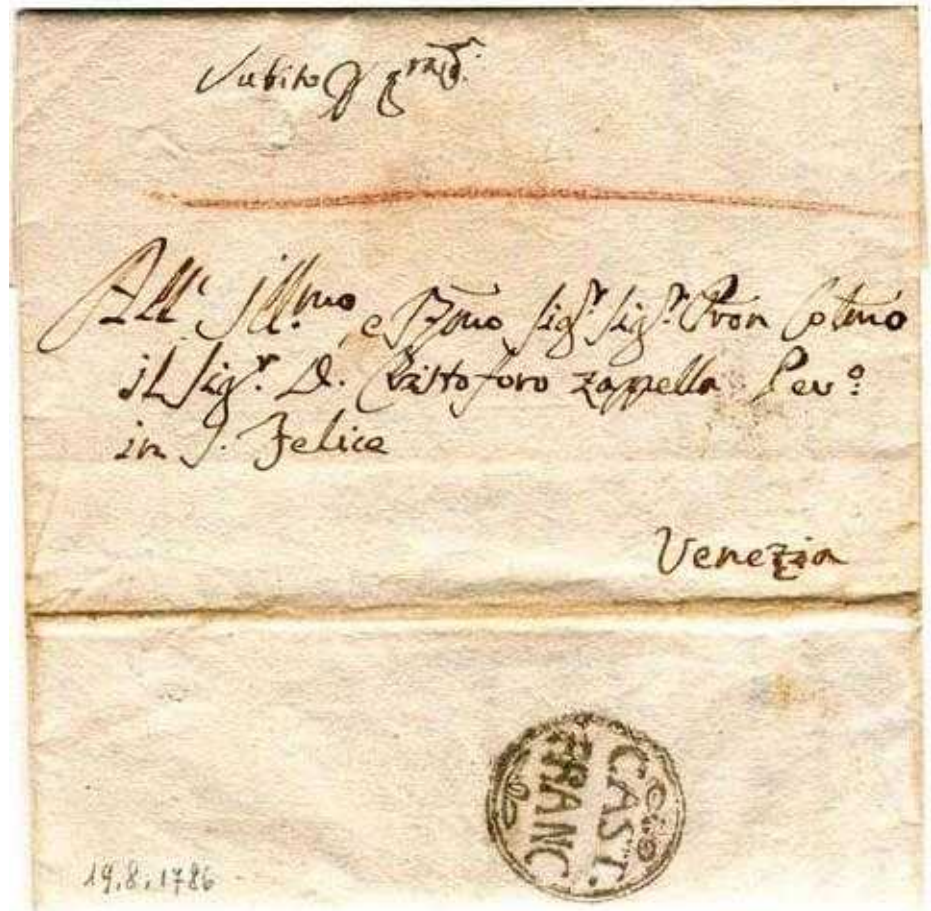 Subito P graz.
All' Ill.mo e R.mo Sig.r Sig.r Pron Colmo
il Sig.r D. Cristoforo Zappella Pev.o
in S. Felice
Venezia
CAST.
FRANC
19.8.1786